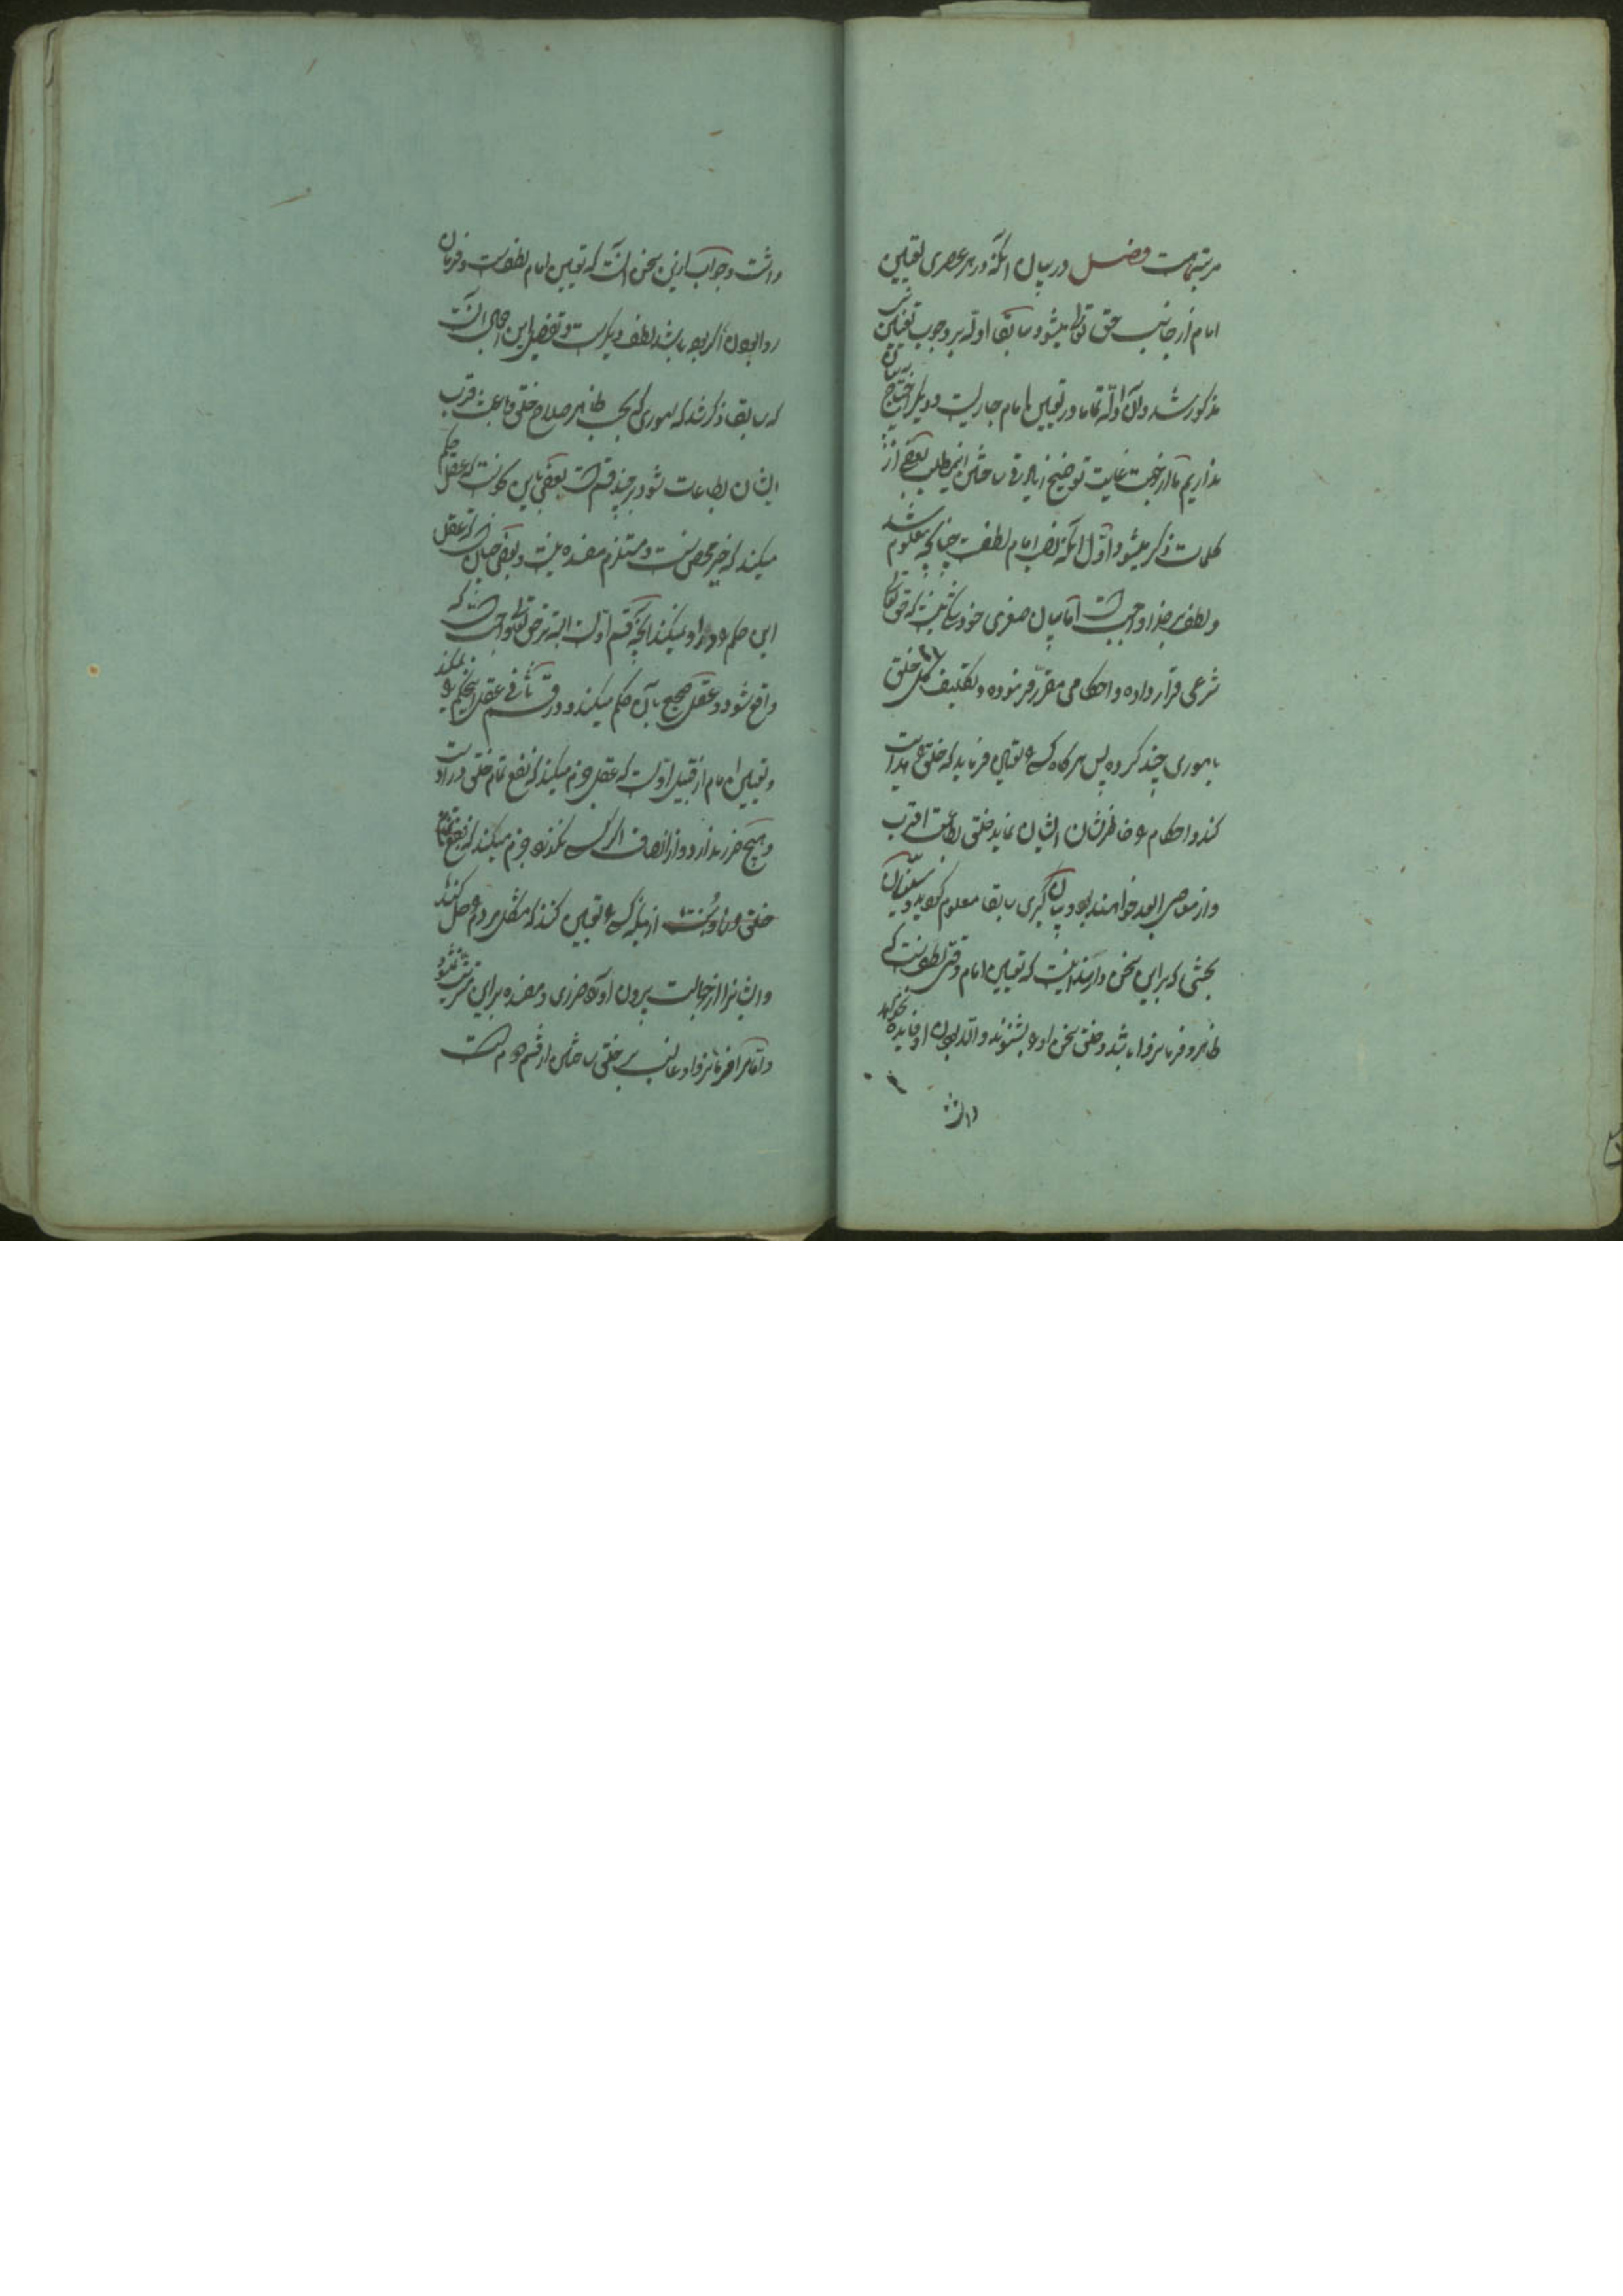 مرتبهاست فصل در بیان انکه در هر عصری تعیین
امام از جانب حق تعالی میشود سابقا ادله بر وجوب تعیین نبی
مذکور شد و آن ادله تماما در تعیین امام جاریست و دیگر احتیاج به بیان
نداریم اما از جهت غایت توضیح زیادتی ساختن اینمطلب بعضی از
کلمات ذکر میشود اول انکه نصب امام لطفست چنانچه معلوم شد
و لطف بر خدا واجبست اما بیان صغری خود شک نیست که حق تعالی
شرعی قرار داده و احکامی مقرر فرموده و تکلیف کل خلق
باموری چند کرده پس هر کاه کسی را تعیین فرماید که خلق را هدایت
کند و احکام را خاطرنشان ایشان نماید خلق بطاعت اقرب
و از معاصی ابعد خواهند بود و بیان کبری سابقا معلوم کردید و
بحثی که بر این سخن دارند اینست که تعیین امام وقتی لطف است که
ظاهر و فرمانروا باشد و خلق سخن او را بشنوند و الا بودن او فایده نخواهد
داشت
داشت و جواب ازین سخن آنست که تعیین امام لطفست و فرمان
روا بودن اکر بوده باشد لطف دیکریست و تفصیل این اجمال آنست
که سابقا ذکر شد که اموری که بحسب ظاهر صلاح خلق و باعث قرب
ایشان بطاعت شود بر چند قسم است بعضی باین کونه است که عقل حکم
میکند که خیر محض است و مستلزم مفسده نیست و بعضی چنان است که عقل
این حکم را در او نمیکند آنچه قسم اولست البته بر حق تعالی واجبست که
واقع شود و عقل صحیح بآن حکم میکند و در قسم ثانی عقل این حکم را نمیکند
و تعیین امام از قبیل اولست که عقل جزم میکند که نفع تمام خلق در اوست
و هیچ ضرر ندارد و از انصاف اکر کسی نکذرد جزم میکند که نفع تمام
خلق در اوست از اینکه کسی را تعیین کنند که مشکل مردم را حل کند
و ایشانرا از جهالت بیرون آورد ضرری و مفسده بر این مترتب نمیشود
و اما امر فرمانروا و غالب بر خلق ساختن از قسم دوم است